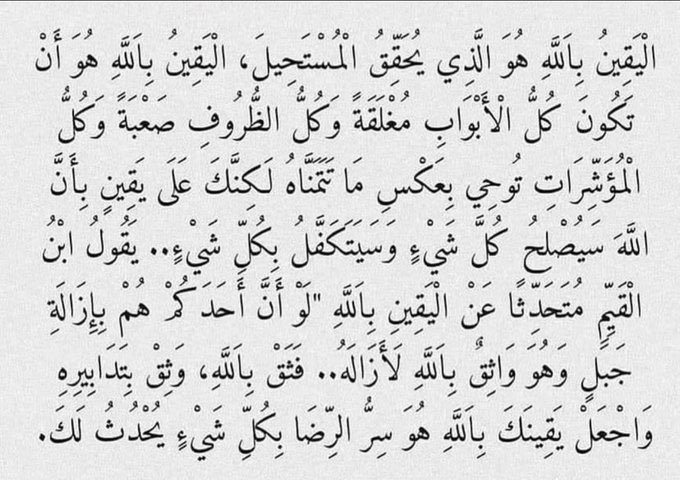 الْيَقِينُ بِاَللَّهِ هُوَ الَّذِي يُحَقِّقُ الْمُسْتَحِيلَ، الْيَقِينُ بِاَللَّهِ هُوَ أَنْ
تَكُونَ كُلُّ الْأَبْوَابِ مُغْلَقَةً وَكُلُّ الظُّرُوفِ صَعْبَةً وَكُلُّ
الْمُؤَشِّرَاتِ تُوحِي بِعَكْسِ مَا تَتَمَنَّاهُ لَكِنَّكَ عَلَى يَقِينٍ بِأَنَّ
اللَّهَ سَيُصْلِحُ كُلَّ شَيْءٍ وَسَيَتَكَفَّلُ بِكُلِّ شَيْءٍ.. يَقُولُ ابْنُ
الْقَيِّمِ مُتَحَدِّثًا عَنْ الْيَقِينِ بِاَللَّهِ "لَوْ أَنَّ أَحَدَكُمْ هُمْ بِإِزَالَةِ
جَبَلٍ وَهُوَ وَاثِقٌ بِاَللَّهِ لَأَزَالَهُ.. فَثَقْ بِاَللَّهِ، وَثِقْ بِتَدَابِيرِهِ
وَاجْعَلْ يَقِينَكَ بِاَللَّهِ هُوَ سِرُّ الرِّضَا بِكُلِّ شَيْءٍ يُحْدُثُ لَكَ.